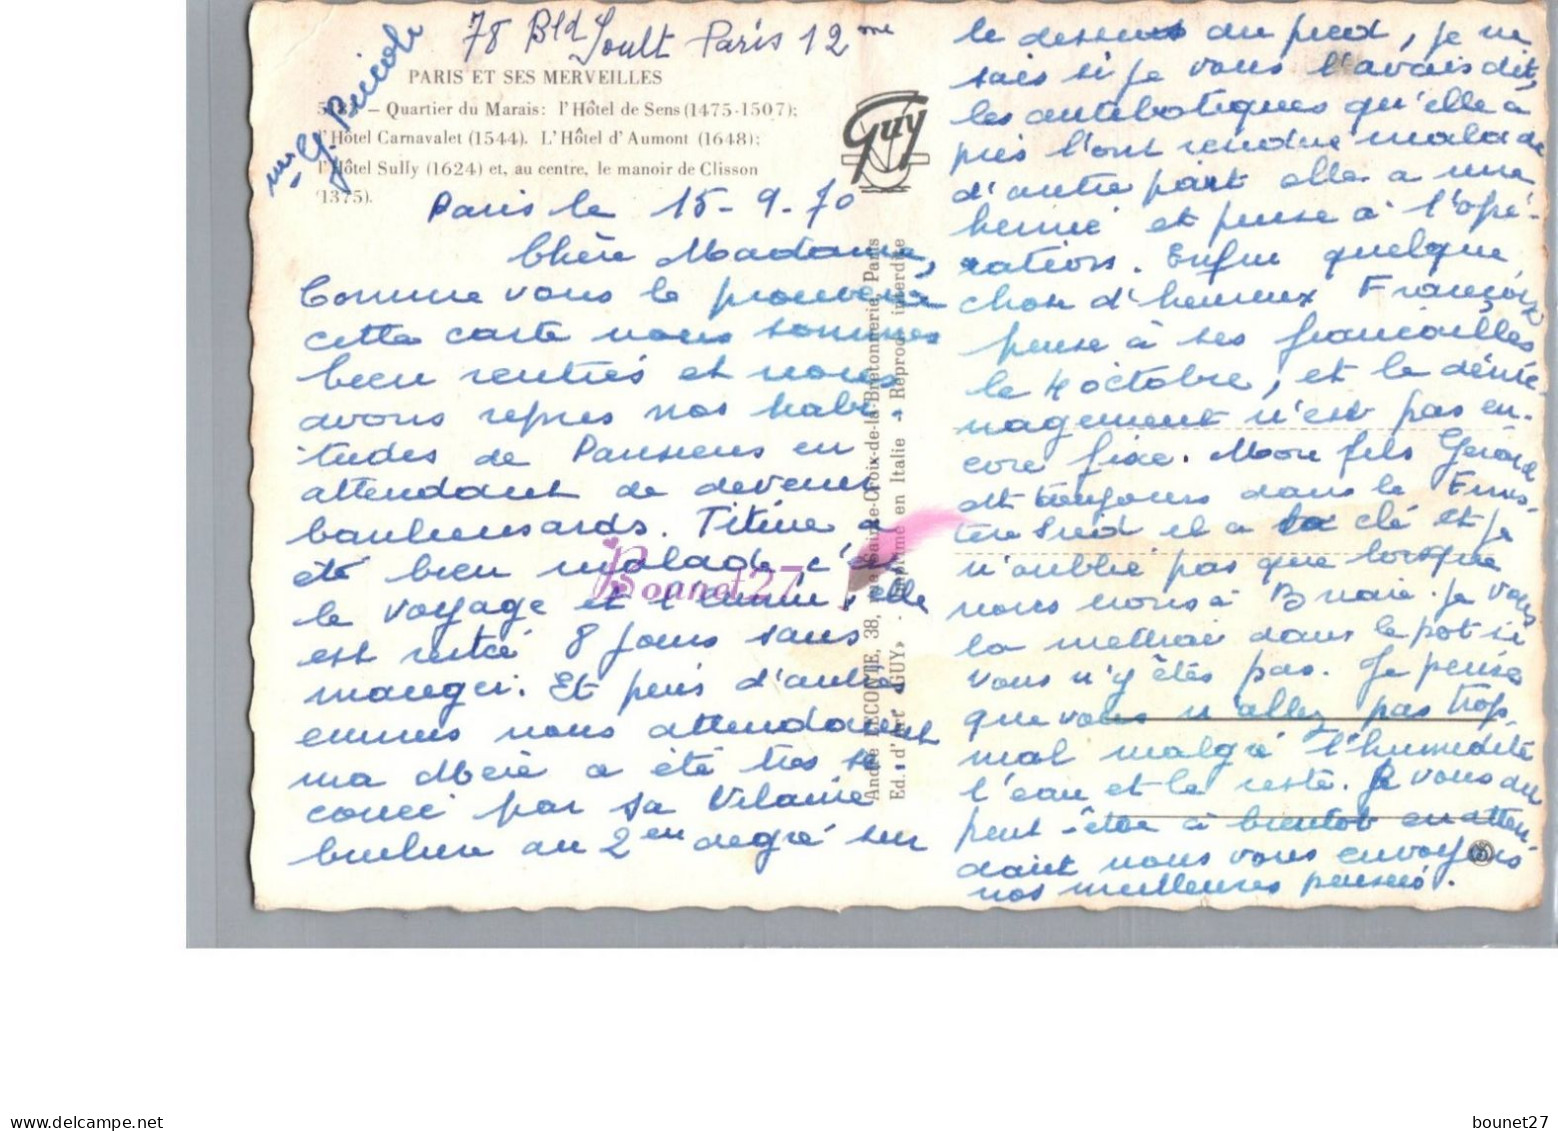 78 Bld Soult Paris 12me
PARIS ET SES MERVEILLES
— Quartier du Marais: l'Hôtel de Sens (1475-1507);
l'Hôtel Carnavalet (1544). L'Hôtel d'Aumont (1648);
l'Hôtel Sully (1624) et, au centre, le manoir de Clisson
(1375).
Guy
Paris le 15-9-70
Chère Madame,
Comme vous le prouvera
cette carte nous sommes
bien rentrés et nous
avons repris nos habi-
tudes de Parisiens en
attendant de devenir
banlieusards. Titine a
été bien malade, c'est
le voyage et l'ennui, elle
est restée 8 jours sans
manger. Et puis d'autres
ennuis nous attendaient
ma Mère a été très se-
couée par sa vilaine
brulure au 2en degré sur
le dessus du pied, je ne
sais si je vous l'avais dit,
les antibiotiques qu'elle a
pris l'ont rendue malade
d'autre part elle a une
hernie et pense à l'opé-
ration. Enfin quelque
chose d'heureux François
pense à ses fiancailles
le 4 octobre, et le démé-
nagement n'est pas en-
core fixe. Mon fils Gérard
est toujours dans le Finis-
tère Sud il a la clé et je
n'oublie pas que lorsque
nous irons à je vous
la mettrai dans le pot si
vous n'y êtes pas. Je pense
que vous n'allez pas trop
mal malgré l'humidité
l'eau et le reste. Je vous dis
peut-être à bientôt en atten-
dant nous vous envoyons
nos meilleures pensées.
André LECONTE, 38, rue Sainte-Croix-de-la-Bretonnerie, Paris
Ed. d'Art «GUY» - Imprimé en Italie - Reprod. interdite
Bounet27
delcampe.net
bounet27